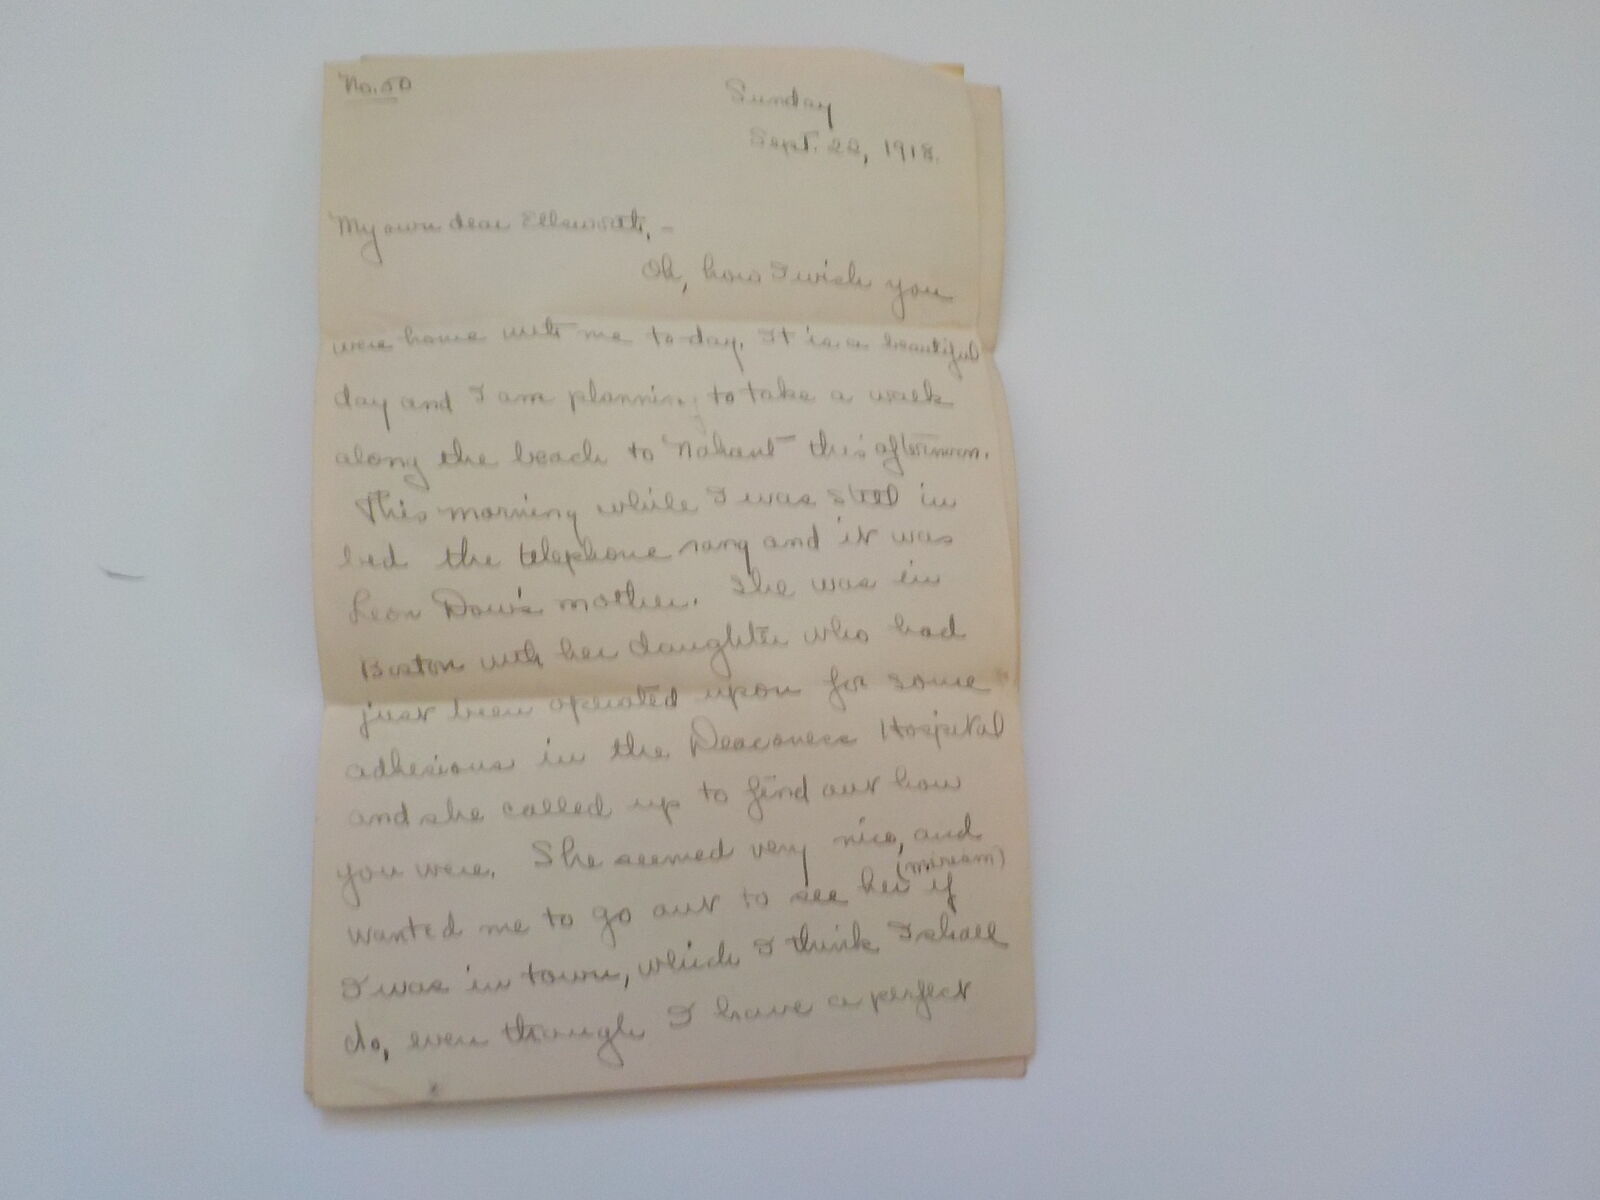 No. 50
Sunday
Sept. 22, 1918.
My own dear Ellsworth, -
Oh, how I wish you
were home with me to-day. It is a beautiful
day and I am planning to take a walk
along the beach to Nahant this afternoon.
This morning while I was still in
bed the telephone rang and it was
Leon Dow's mother. She was in
Boston with her daughter who had
just been operated upon for some
adhesions in the Deaconess Hospital
and she called up to find out how
you were. She seemed very nice, and
wanted me to go out to see her (Miriam) if
I was in town, which I think I shall
do, even though I have a perfect